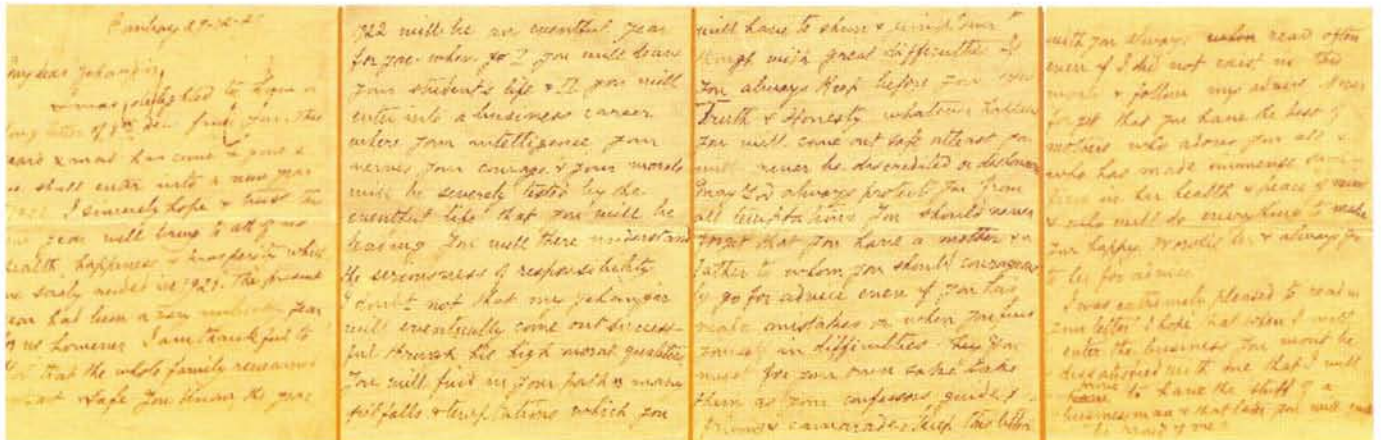 Bombay 29-12-2
My dear Jehangir,
I was delighted to
letter of 8th Dec
Xmas has come & gone &
we shall enter into a new year
1922 I sincerely hope & trust
year will bring to all of us
health, happiness & prosperity which
we sorely needed in 1921. The present
year has been a very year
for us however I am thankful to
God that the whole family remained
& safe You know the year
1922 will be an eventful year
for you when you will leave
your student's life & you will
enter into a business career
where your intelligence your
nerves your courage & your morals
will be severely tested by the
eventful life that you will be
leading You will there understand
the seriousness of responsibility
I doubt not that my Jehangir
will eventually come out success-
ful through his high moral qualities
You will find in your path many
pitfalls & temptations which you
will have to shun &
with great difficulties If
you always keep before your eyes
Truth & Honesty whatever happens
you will come out safe atleast you
will never be discredited or
May God always protect you from
all temptations You should never
forget that you have a mother & a
father to whom you should courageous
ly go for advice even if you
make mistakes or when you find
yourself in difficulties
must for your own sake take
them as your confessors guides
friends & camarades Keep this letter
with you always read often
even if I did not exist in this
world & follow my advice. Never
forget that you have the best of
mothers who adores you all &
who has made immense
in her health & peace of mind
& who will do everything to make
you happy. Worship her & always go
to her for advice.
I was extremely pleased to read in
your letter I hope that when I will
enter the business you wont be
dissatisfied with me that I will
prove to have the stuff of a
business man & that you will
be proud of me.